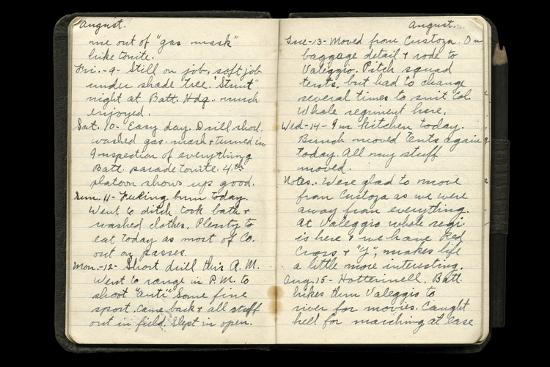 August.
me out of "gas mask"
hike tonite.
Fri. - 9 - Still on job, soft job
under shade tree. "Stunt"
night at Batt. Hdq. much
enjoyed.
Sat. 10 - Easy day. Drill short.
washed gas mask + turned in
Inspection of everything
Batt. parade tonite. 4th
platoon shows up good.
Sun. 11 - Feeling bum today.
Went to ditch took bath +
washed clothes. Plenty to
eat today as most of Co.
out on passes.
Mon. - 12 - Short drill this A.M.
Went to range in P.M. to
shoot "Enti" Some fine
sport. Came back + all stuff
out in field. Slept in open.
August.
Tues - 13 - Moved from Custoza. On
baggage detail + rode to
Valeggio. Pitch squad
tents, but had to change
several times to suit Col.
Whole regiment here.
Wed - 14 - In kitchen today.
Bunch moved tents again
today. All my stuff
moved.
Notes. Were glad to move
from Custoza as we were
away from everything.
At Valeggio whole regi
is here + we have Red
Cross + "Y", makes life
a little more interesting.
Aug. 15 - Hotterinell. Batt
hikes thru Valeggio to
river for movies. Caught
hell for marching at ease